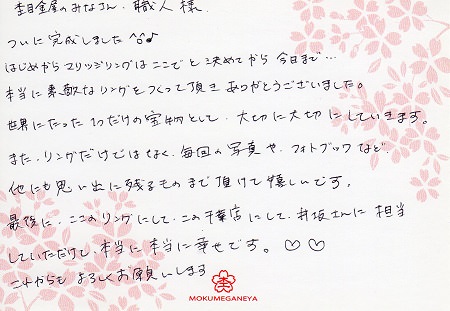 杢目金屋のみなさん、職人様
ついに完成しました^o^♪
はじめからマリッジリングはここでと決めてから今日まで…
本当に素敵なリングをつくって頂きありがとうございました。
世界にたった1つだけの宝物として、大切に大切にしていきます。
また、リングだけではなく、毎回の写真や、フォトブックなど、
他にも思い出に残るものまで頂けて嬉しいです。
最後に、ここのリングにして、この千葉店にして、井坂さんに担当
していただけて、本当に本当に幸せです。♡♡
これからもよろしくお願いします
杢
MOKUMEGANEYA